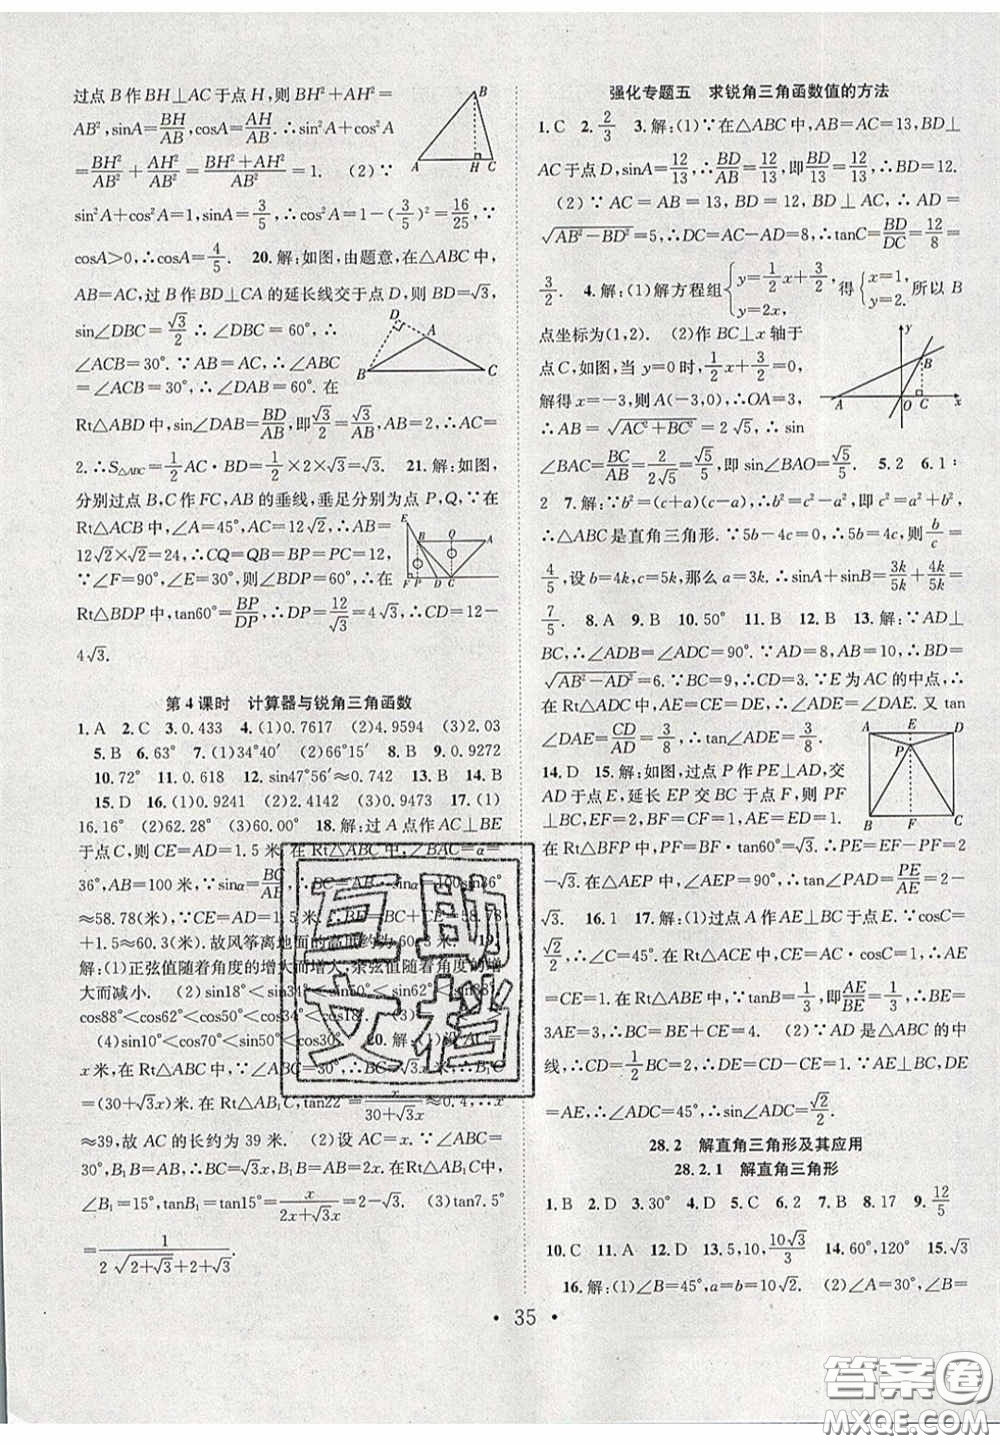 过点 B 作 BH⊥AC 于点 H,则 BH²+AH²=
AB²,sinA=BH/AB,cosA=AH/AB.∴sin²A+cos²A=
BH²/AB²+AH²/AB²=(BH²+AH²)/AB²=1. (2)∵
sin²A+cos²A=1,sinA=3/5,∴cos²A=1-(3/5)²=16/25,∵
cosA>0,∴cosA=4/5. 20.解:如图,由题意,在△ABC中,
AB=AC,过 B 作 BD⊥CA 的延长线交于点 D,BD=√3,
sin∠DBC=√3/2 ∴ ∠DBC = 60°, ∴
∠ACB=30°.∵AB=AC,∴∠ABC
=∠ACB=30°,∴∠DAB=60°. 在
Rt△ABD 中,sin∠DAB=BD/AB,即√3/2=√3/AB,AB=2,∴AC=
2.∴S△ABC=1/2 AC·BD=1/2×2×√3=√3. 21.解:如图,
分别过点 B,C 作 FC,AB 的垂线,垂足分别为点 P,Q,∵在
Rt△ACB 中,∠A=45°,AC=12√2,∴AB=
12√2×√2=24,∴CQ=QB=BP=PC=12,
∵∠F=90°,∠E=30°,则∠BDP=60°,∴在
Rt△BDP 中,tan60°=BP/DP,∴DP=12/√3=4√3,∴CD=12-
4√3.
第 4 课时 计算器与锐角三角函数
1.A 2.C 3.0.433 4.(1)0.7617 (2)4.9594 (3)2.03
5.B 6.63° 7.(1)34°40′ (2)66°15′ 8.B 9.0.9272
10.72° 11.0.618 12.sin47°56′≈0.742 13.B 14.B
15.D 16.(1)0.9241 (2)2.4142 (3)0.9473 17.(1)
16.16° (2)62.28° (3)60.00° 18.解:过 A 点作 AC⊥BE
于点 C,则 CE=AD=1.5 米. 在 Rt△ABC 中,∠BAC=α=
36°,AB=100 米,∵sinα=BC/AB,∴BC=AB·sinα=100sin36°
≈58.78(米),∵CE=AD=1.5米,∴BE=BC+CE=58.78
+1.5≈60.3(米).故风筝离地面的高度约为 60.3 米. 19.
解:(1)正弦值随着角度的增大而增大,余弦值随着角度的增
大而减小. (2)sin18°<sin34°<sin50°<sin62°<sin88°
cos88°<cos62°<cos50°<cos34°<cos18°. (3)
(4)sin10°<cos70°<sin50°<cos30° 20.解:(1)设 AC=
x 米,在 Rt△ABC 中,∠ABC=45°,∴BC=AC=x,∴B₁C
=(30+√3x)米. 在 Rt△AB₁C,tan22°=x/(30+√3x)≈0.4,∴x
≈39,故 AC 的长约为 39 米. (2)设 AC=x. ∵∠ABC=
30°,B₁B=AB=2AC=2x. 在 Rt△AB₁C中,
∠B₁=15°,tanB₁=tan15°=x/(2x+√3x)=2-√3. (3)tan7.5°
=1/(2√(2+√3)+2+√3).
强化专题五 求锐角三角函数值的方法
1.C 2.2/3 3.解:(1)∵在△ABC中,AB=AC=13,BD⊥
AC于点 D,sinA=12/13,∴BD/AB=12/13,即BD/13=12/13,∴BD=12.
(2)∵ AC = AB = 13, BD = 12, BD⊥AC, ∴ AD =
√(AB²-BD²)=5,∴DC=AC-AD=8,∴tanC=BD/DC=12/8=
3/2. 4.解:(1)解方程组{y=1/2x+3/2, y=2x, 得{x=1, y=2. 所以 B
点坐标为(1,2). (2)作 BC⊥x 轴于
点 C,如图,当 y=0时,1/2x+3/2=0,
解得 x=-3,则 A(-3,0),∴OA=3,
∴AB = √(AC²+BC²) = 2√5, ∴ sin
∠BAC=BC/AB=2/(2√5)=√5/5,即 sin∠BAO=√5/5. 5.2 6.1:
2 7.解:∵b²=(c+a)(c-a),∴b²=c²-a²,即c²=a²+b²,
∴△ABC是直角三角形. ∵5b-4c=0,∴5b=4c,则b/c=
4/5,设 b=4k,c=5k,那么 a=3k. ∴sinA+sinB=3k/5k+4k/5k=
7/5. 8.A 9.B 10.50° 11.B 12.B 13.解:∵AD⊥
BC,∴∠ADB=∠ADC=90°. ∵AB=10,AD=8,∴BD=
√(AB²-AD²)=6. ∵BC=9,∴CD=3. ∵E 为 AC 的中点,∴
在 Rt△ADC中,AE=CE=DE,∴∠DAE=∠ADE. 又 tan
∠DAE=CD/AD=3/8,∴tan∠ADE=3/8.
14.D 15.解:如图,过点 P 作 PE⊥AD,交
AD 于点 E,延长 EP 交 BC 于点 F,则 PF
⊥BC,EF=2,BF=1,∠PBF=60°,
在 Rt△BFP 中,PF=BF·tan60°=√3,∴PE=2
-√3. 在△AEP 中,∠AEP=90°,∴tan∠PAE=PE/AE=2-
√3. 16.1 17.解:(1)过点 A 作 AE⊥BC 于点 E. ∵cosC=
√2/2,∴∠C=45°. 在 Rt△ACE 中,CE=AC·cosC=1,∴AE
=CE=1. 在 Rt△ABE 中,∵tanB=1/3,即AE/BE=1/3,∴BE=
3AE=3,∴BC=BE+CE=4. (2)∵AD是△ABC 的中
线,∴CD=1/2BC=2,∴DE=CD-CE=1,∵AE⊥BC,DE
=AE,∴∠ADC=45°,∴sin∠ADC=√2/2.
28.2 解直角三角形及其应用
28.2.1 解直角三角形
1.B 2.D 3.30° 4.D 5.C 6.2 7.B 8.17 9.12/5
10.C 11.A 12.D 13.5,10,10√3/3 14.60°,120° 15.√3
16.解:(1)∠B=45°,a=b=10√2. (2)∠A=30°,∠B=
• 35 •
互助
文档
答案圈
MXQE.COM